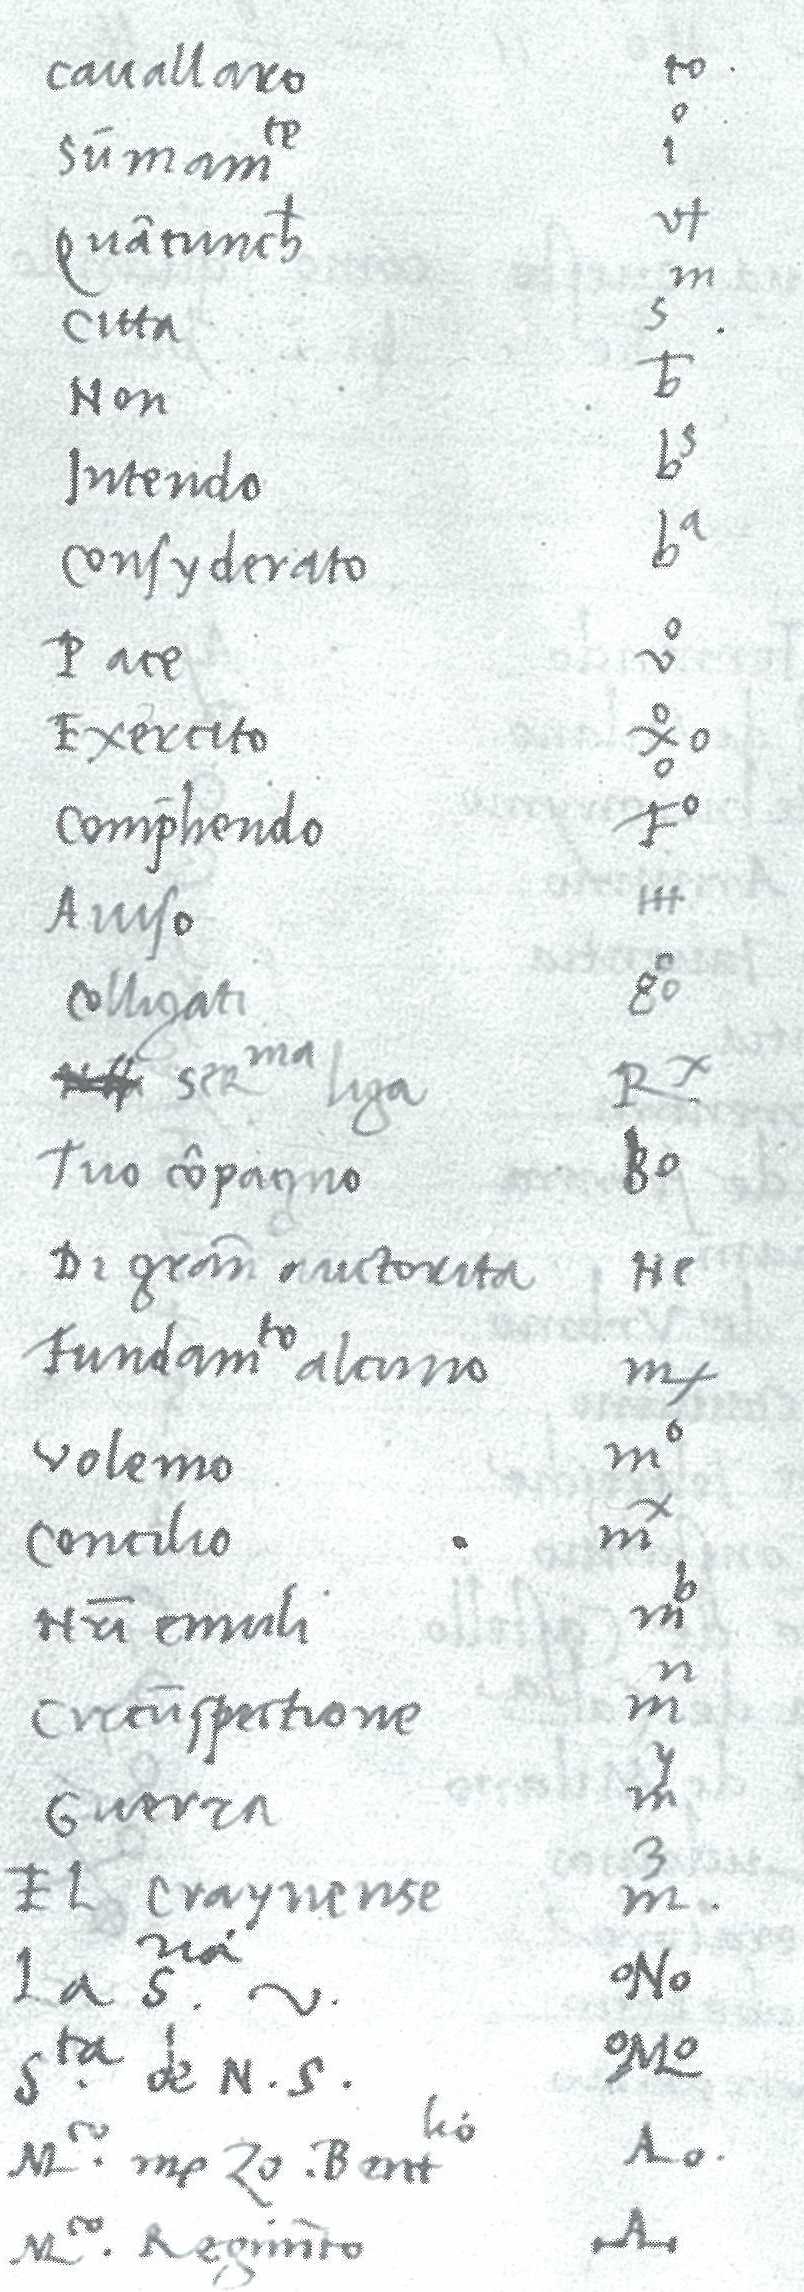 cauallaro to
sūmam^te i^o
quātunch vt
citta s^m
Non b̄
Intendo b^s
consyderato b^a
Pace v^o
Exercito
comp̄hendo F^o
Auiso
colligati 8^oo
ser^ma liga R^x
Tuo cōpagno 8o
Di gran̄ auctorita He
Fundam^to alcuno
volemo m^o
concilio m^x
Nr̄i emuli m^b
circūspectione m^n
Guerra m^y
El craynense m^3.
La S.^ria v. oNo
S^ta. de N.S. oMo
M^co. Zo. Bent^lio Ao.
M^co. Regim̄to A